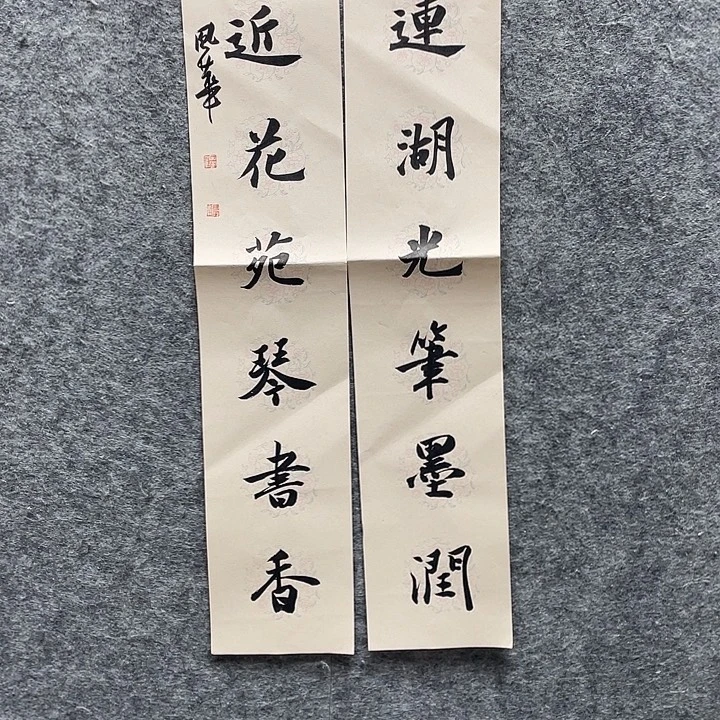 連湖光筆墨潤
近花苑琴書香
風華